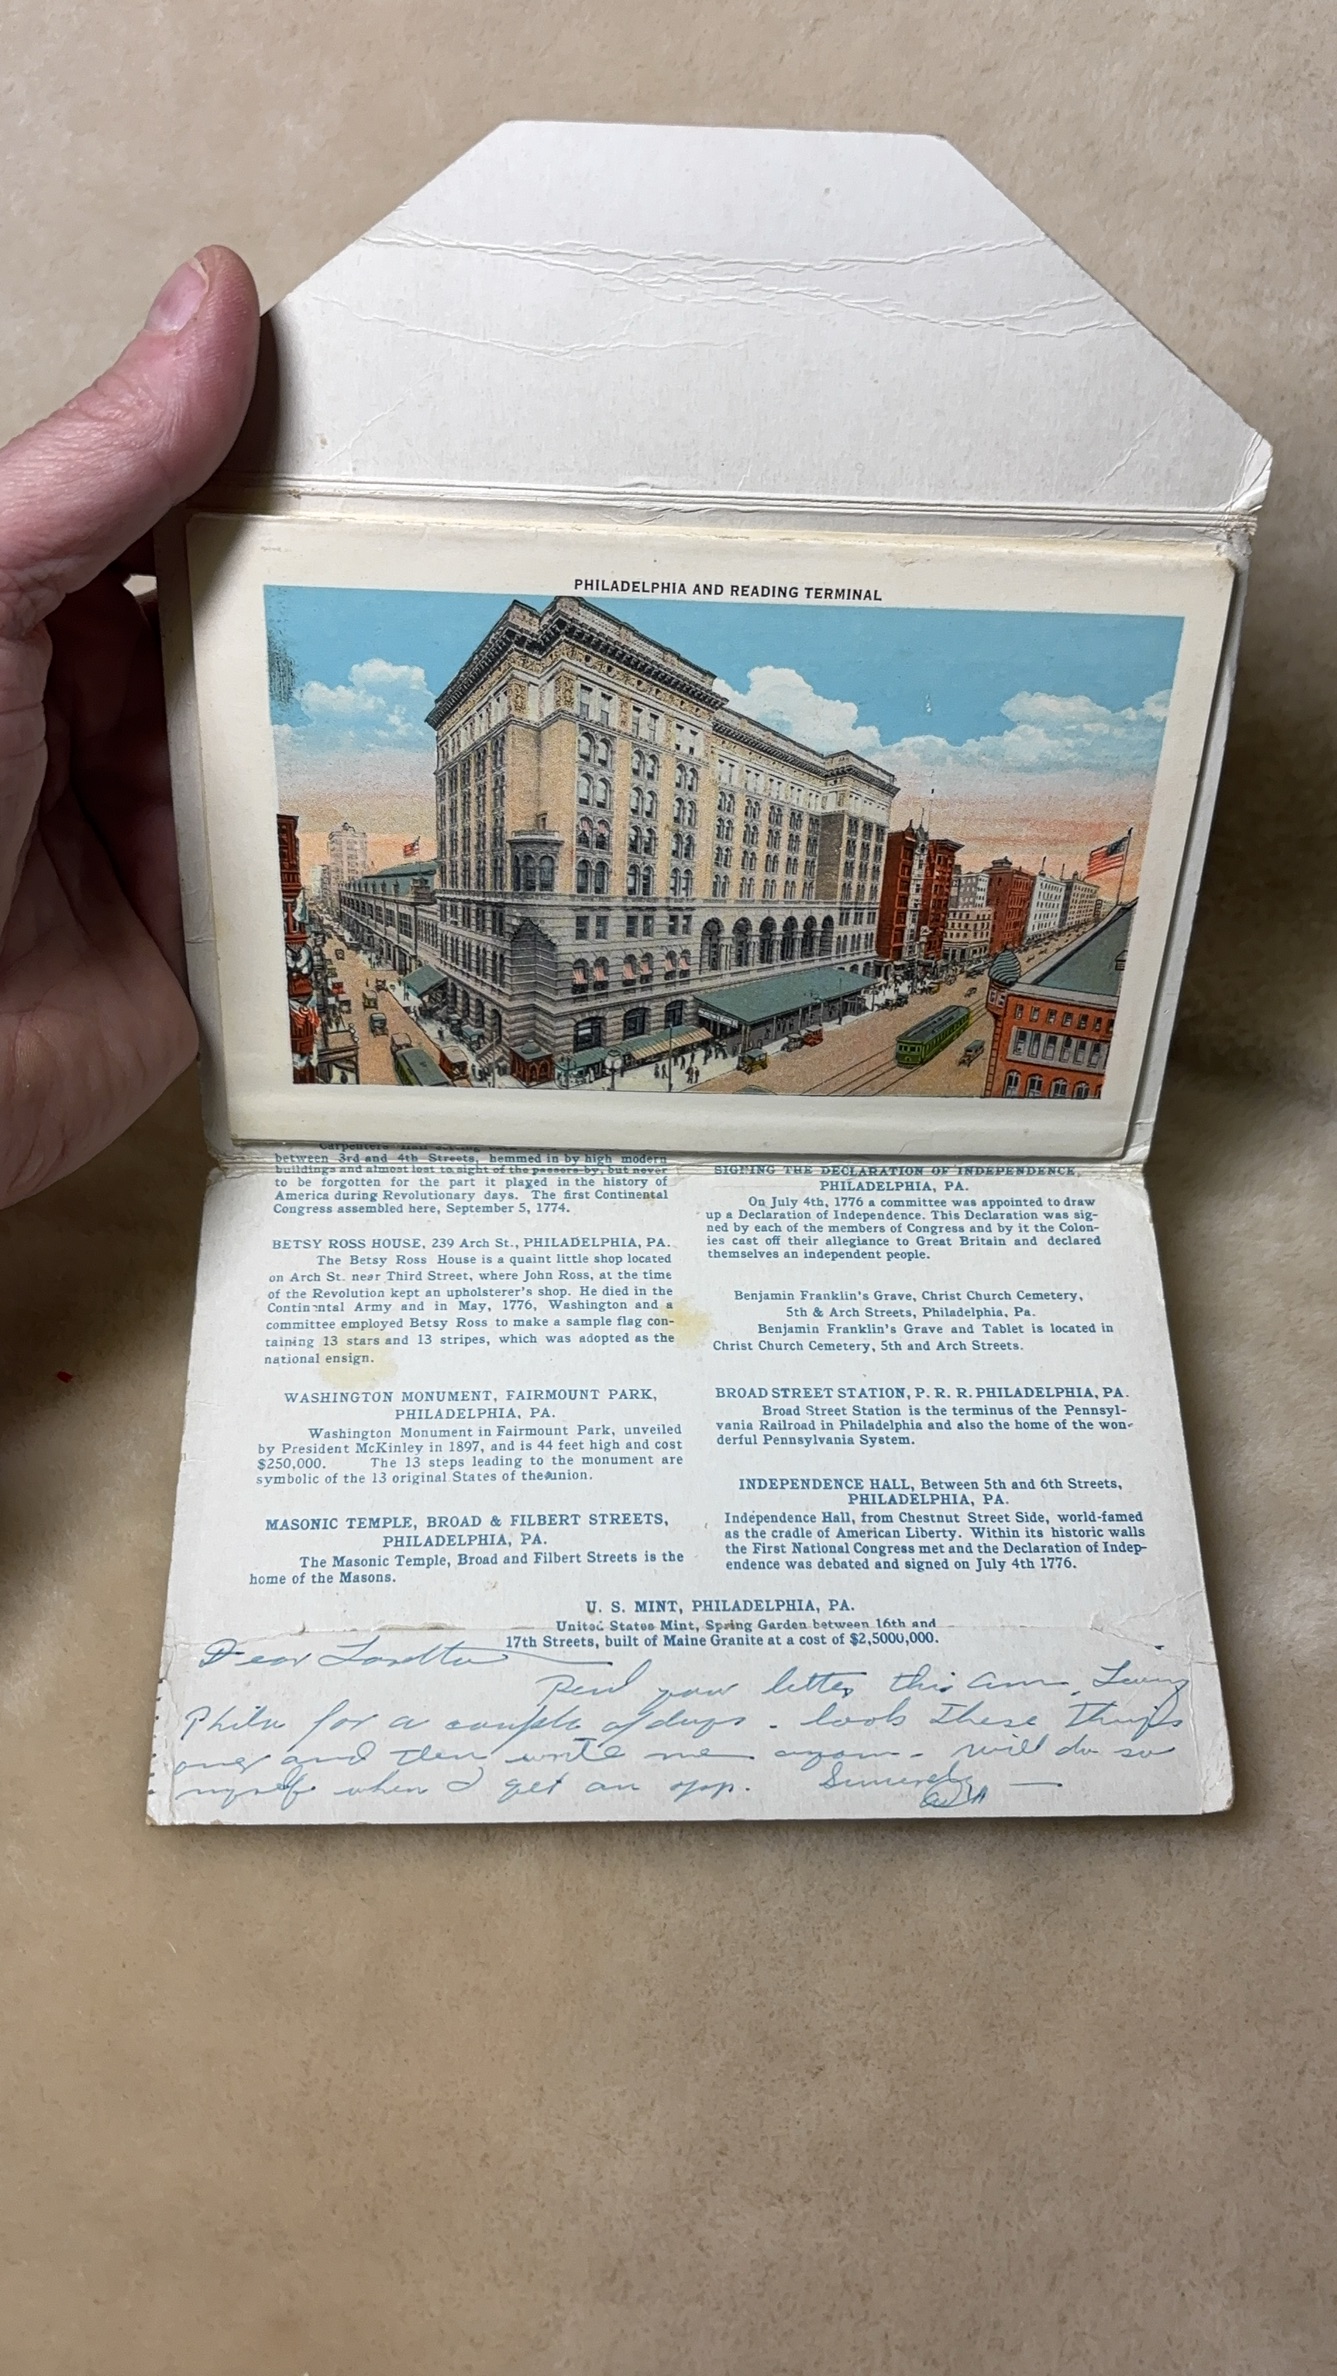 PHILADELPHIA AND READING TERMINAL
Carpenters'
between 3rd and 4th Streets, hemmed in by high modern
buildings and almost lost to sight of the passers-by, but never
to be forgotten for the part it played in the history of
America during Revolutionary days. The first Continental
Congress assembled here, September 5, 1774.
BETSY ROSS HOUSE, 239 Arch St., PHILADELPHIA, PA.
The Betsy Ross House is a quaint little shop located
on Arch St. near Third Street, where John Ross, at the time
of the Revolution kept an upholsterer's shop. He died in the
Continental Army and in May, 1776, Washington and a
committee employed Betsy Ross to make a sample flag con-
taining 13 stars and 13 stripes, which was adopted as the
national ensign.
WASHINGTON MONUMENT, FAIRMOUNT PARK,
PHILADELPHIA, PA.
Washington Monument in Fairmount Park, unveiled
by President McKinley in 1897, and is 44 feet high and cost
$250,000. The 13 steps leading to the monument are
symbolic of the 13 original States of the union.
MASONIC TEMPLE, BROAD & FILBERT STREETS,
PHILADELPHIA, PA.
The Masonic Temple, Broad and Filbert Streets is the
home of the Masons.
SIGNING THE DECLARATION OF INDEPENDENCE,
PHILADELPHIA, PA.
On July 4th, 1776 a committee was appointed to draw
up a Declaration of Independence. This Declaration was sig-
ned by each of the members of Congress and by it the Colon-
ies cast off their allegiance to Great Britain and declared
themselves an independent people.
Benjamin Franklin's Grave, Christ Church Cemetery,
5th & Arch Streets, Philadelphia, Pa.
Benjamin Franklin's Grave and Tablet is located in
Christ Church Cemetery, 5th and Arch Streets.
BROAD STREET STATION, P. R. R. PHILADELPHIA, PA.
Broad Street Station is the terminus of the Pennsyl-
vania Railroad in Philadelphia and also the home of the won-
derful Pennsylvania System.
INDEPENDENCE HALL, Between 5th and 6th Streets,
PHILADELPHIA, PA.
Independence Hall, from Chestnut Street Side, world-famed
as the cradle of American Liberty. Within its historic walls
the First National Congress met and the Declaration of Indep-
endence was debated and signed on July 4th 1776.
U. S. MINT, PHILADELPHIA, PA.
United States Mint, Spring Garden between 16th and
17th Streets, built of Maine Granite at a cost of $2,5000,000.
Dear Loretta
Recd your letter this am. Leaving
Phila for a couple of days - look these things
over and then write me again - will do so
myself when I get an opp. Sincerely